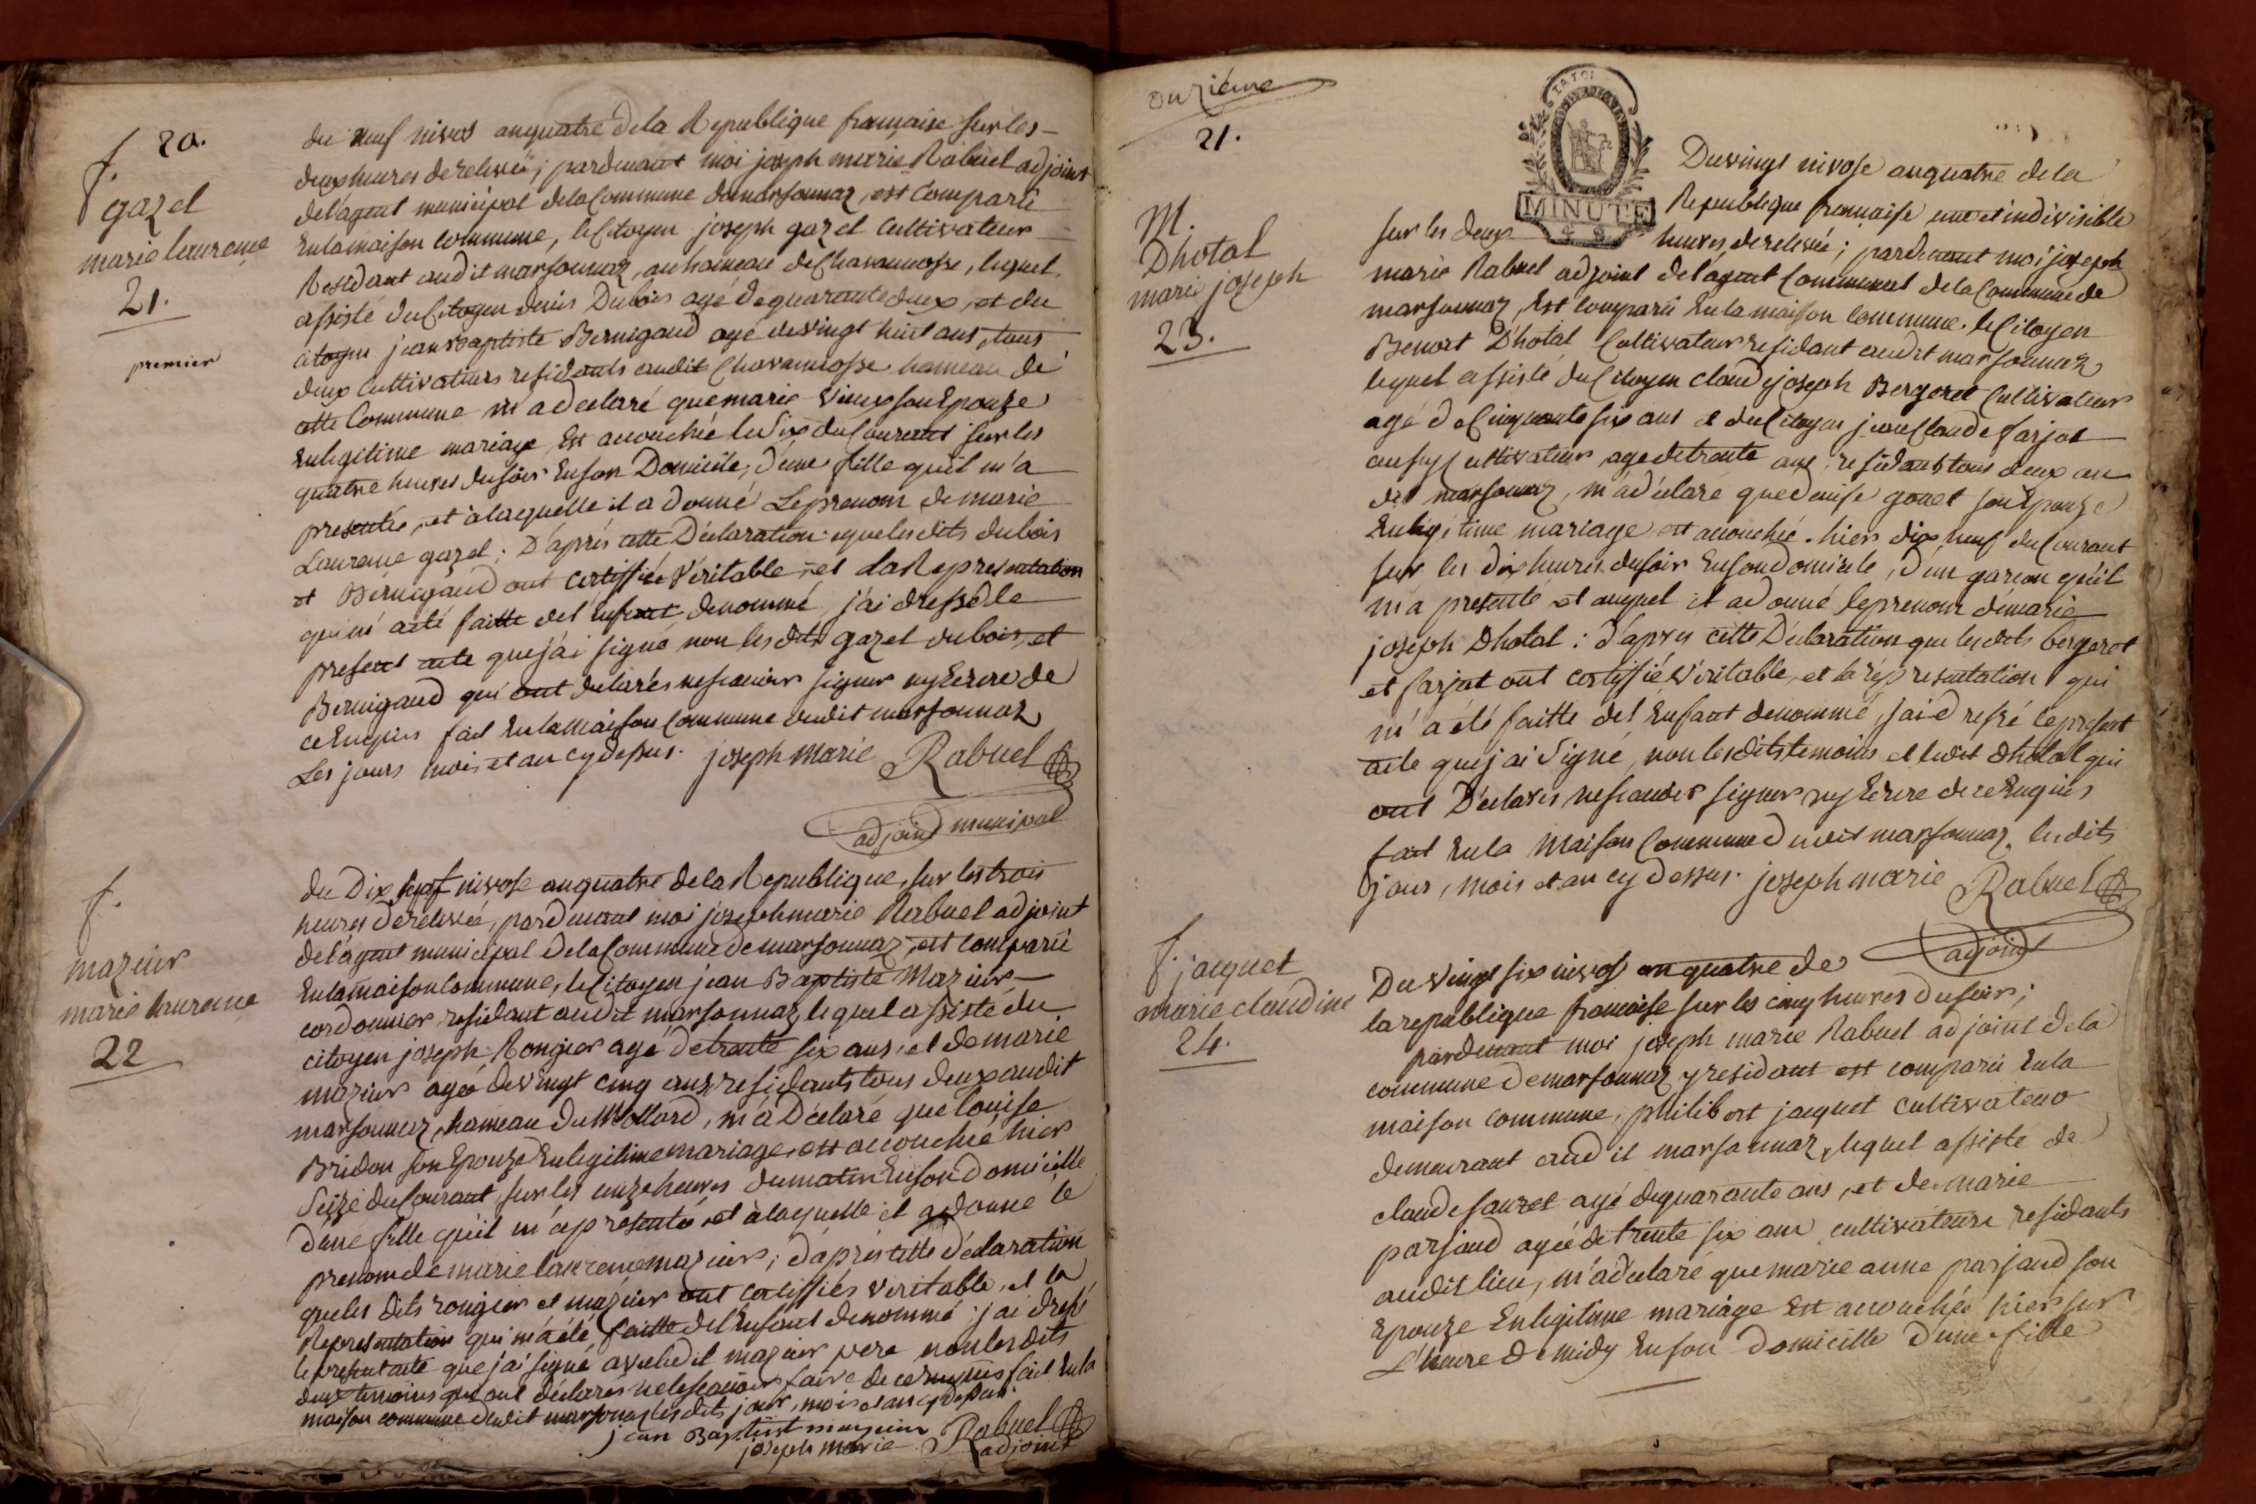 20.
f.
gazel
marie laurence
21.
premier
du neuf nivos anquatre dela Republique francaise sur les
deux heures derelevée; pardevant moi joseph marie Rabuel adjoint
delagent municipal delaCommune demarsonnaz, est Comparü
Enlamaison Commune, leCitoyen joseph gazel Cultivateur
Residant audit marsonnaz, auhameau deChavannosse, lequel
assisté duCitoyen denis Dubois agé dequarantedeux, et du
citoyen jean baptiste Bernigaud agé devingt huit ans, tous
deux Cultivateurs residants audit Chavannosse hameau de
cette Commune m'adeclaré quemarie vieux son Epouze
Enlegitime mariage Est accouchée le Six duCourant sur les
quatre heures dusoir Enson Domicile, d'une fille qu'il m'a
presentée, et alaquelle il a donné Leprenom demarie
Laurence gazel; D'après cette Déclaration quelesdits dubois
et Bernigaud ont Certiffiée Véritable, et la Representation
qui m'aété faitte del'enfant denommé, j'ai dressé le
present acte quej'ai signé non lesdits gazel dubois, et
Bernigaud qui ont declarés nescavoir signer nyEcrire de
ceEnquis fait Enlamaison Commune dudit marsonnaz
Les jours mois et an cydessus. joseph marie Rabuel
adjoint municipal
f.
mazuir
marie laurence
22
du Dix sept nivose anquatre dela Republique, sur les trois
heures derelevée, pardevant moi josephmarie Rabuel adjoint
del'agent municipal delaCommune demarsonnaz, est comparü
Enlamaison Commune, leCitoyen jean Baptiste Mazuir
cordonnier residant audit marsonnaz lequel assisté du
citoyen joseph Rongier agé detrente six ans, et de marie
mazuir agée devingt cinq ans residants tous deux audit
marsonnaz, hameau duMollard, m'a Déclaré que louise
Bridon son Epouze Enlegitime mariage, est accouchée hier
Seize duCourant, sur les onze heures dumatin Enson domicille
d'une fille qu'il m'apresentée et alaquelle il a donné le
prenom de marie laurence mazuir; d'après cette déclaration
queles dits rongier et mazuir ont certiffiés veritable, et la
Representation qui m'aété faitte del'Enfant denommé j'ai dressé
lepresent acte que j'ai signé avecledit mazuir pere nonlesdits
deux temoins qui ont déclarés nelescavoir faire de ceenquis fait Enla
maison commune dudit marsonnaz lesdits jour, mois et an cydessus.
jean Baptiste mazuir
joseph marie Rabuel
adjoint
onzième
21.
M.
Dhotal
marie joseph
23.
MINUTE
Duvingt nivose anquatre dela
Republique francaise une et indivisible
sur les deux heures, derelevée; pardevant moi joseph
marie Rabuel adjoint del'agent Communal delaCommune de
marsonnaz, Est comparü Enlamaison Commune, leCitoyen
Benoit D'hotal Cultivateur residant audit marsonnaz
lequel assisté duCitoyen claude joseph Bergeret Cultivateur
agé deCinquante six ans et duCitoyen jeanClaude farjat
aussy Cultivateur agé detrente ans, residants tous deux au
dit marsonnaz, m'adéclaré quedenise gonet son Epouze
Enlegitime mariage est accouchée hier dix neuf duCourant
sur les dix heures dusoir Ensondomicile, d'un garcon qu'il
m'a presenté et auquel il adonné leprenom demarie
joseph Dhotal: d'apres cette Déclaration que lesdits bergeret
et farjat ont certiffié Véritable, et la représentation qui
m'a été faitte del'Enfant denommé, j'aidressé lepresent
acte quej'ai Signé, non lesdits temoins et ledit dhotal qui
ont Déclarés nescavoir signer nyEcrire de ceEnquis
fait Enla Maison Commune dudit marsonnaz, lesdits
jour, mois et an cy dessus. joseph marie Rabuel
adjoint
f. jacquet
marie claudine
24.
Du vingt six nivos an quatre de
la republique francaise sur les cinq heures dusoir;
pardevant moi joseph marie Rabuel adjoint de la
commune demarsonnaz y residant est comparü Enla
maison commune, philibert jacquet cultivateur
demeurant audit marsonnaz, lequel assisté de
claude fauret agé dequarante ans, et de marie
parjaud agée detrente six ans cultivateurs residants
audit lieu, m'adeclaré quemarie anne parjaud son
Epouze Enlegitime mariage Est accouchée hier sur
L'heure de midy Enson domicille d'une fille